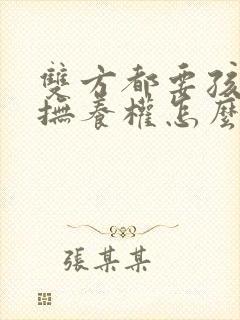 雙方都要孩
撫養權怎麼
張某某